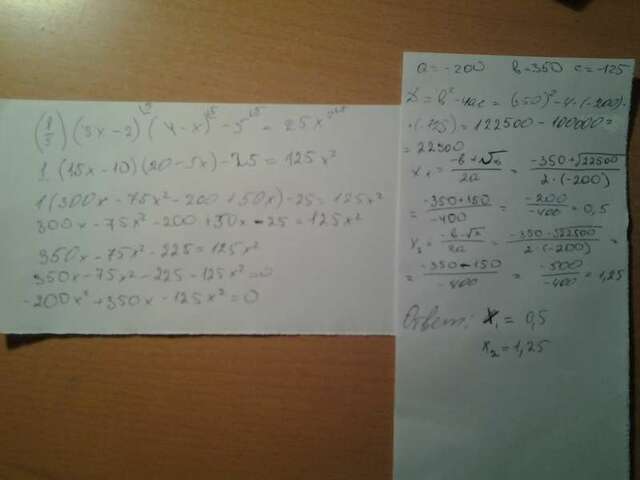 (1/5) (3x-2) (4-x) - 5 = 25x
1 (15x-10)(20-5x)-25 = 125x²
1(300x - 75x² - 200 + 50x) - 25 = 125x²
300x - 75x² - 200 + 50x - 25 = 125x²
350x - 75x² - 225 = 125x²
350x - 75x² - 225 - 125x² = 0
-200x² + 350x - 125x² = 0
a = -200 b - 350 c = -125
D = b² - 4ac = (350)² - 4·(-200)·
·(-125) = 122500 - 100000 =
= 22500
x₁ = (-b+√D)/2a = (-350+√22500)/(2·(-200))
= (-350+150)/-400 = -200/-400 = 0,5
x₂ = (-b-√D)/2a = (-350-√22500)/(2·(-200)) =
= (-350-150)/-400 = -500/-400 = 1,25
Ответ: x₁ = 0,5
x₂ = 1,25